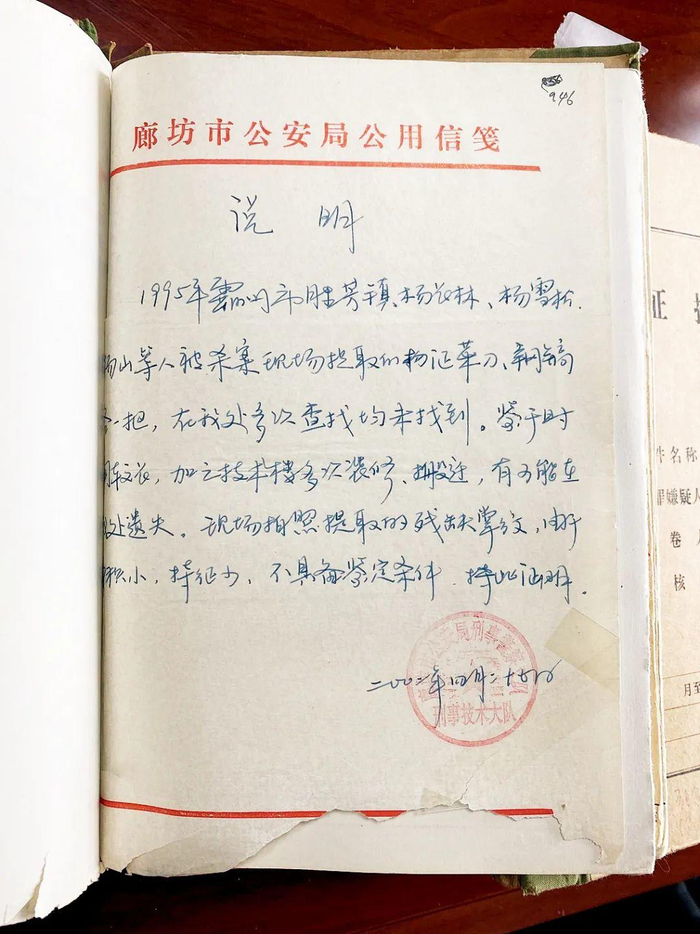 946
廊坊市公安局公用信笺
说 明
1995年霸州市胜芳镇杨 林、杨雪松、
杨山等人被杀案现场提取的物证菜刀、钢镐
各一把,在我处多次查找均未找到。鉴于时
间较长,加之技术楼多次装修、搬迁,有可能在
我处遗失。现场拍照提取的残缺掌纹,由于
面积小,特征少,不具备鉴定条件。特此证明。
公安局刑事警察 队
刑事技术大队
二00二年四月二十
证据
件名称
罪嫌疑人
卷
核
月至